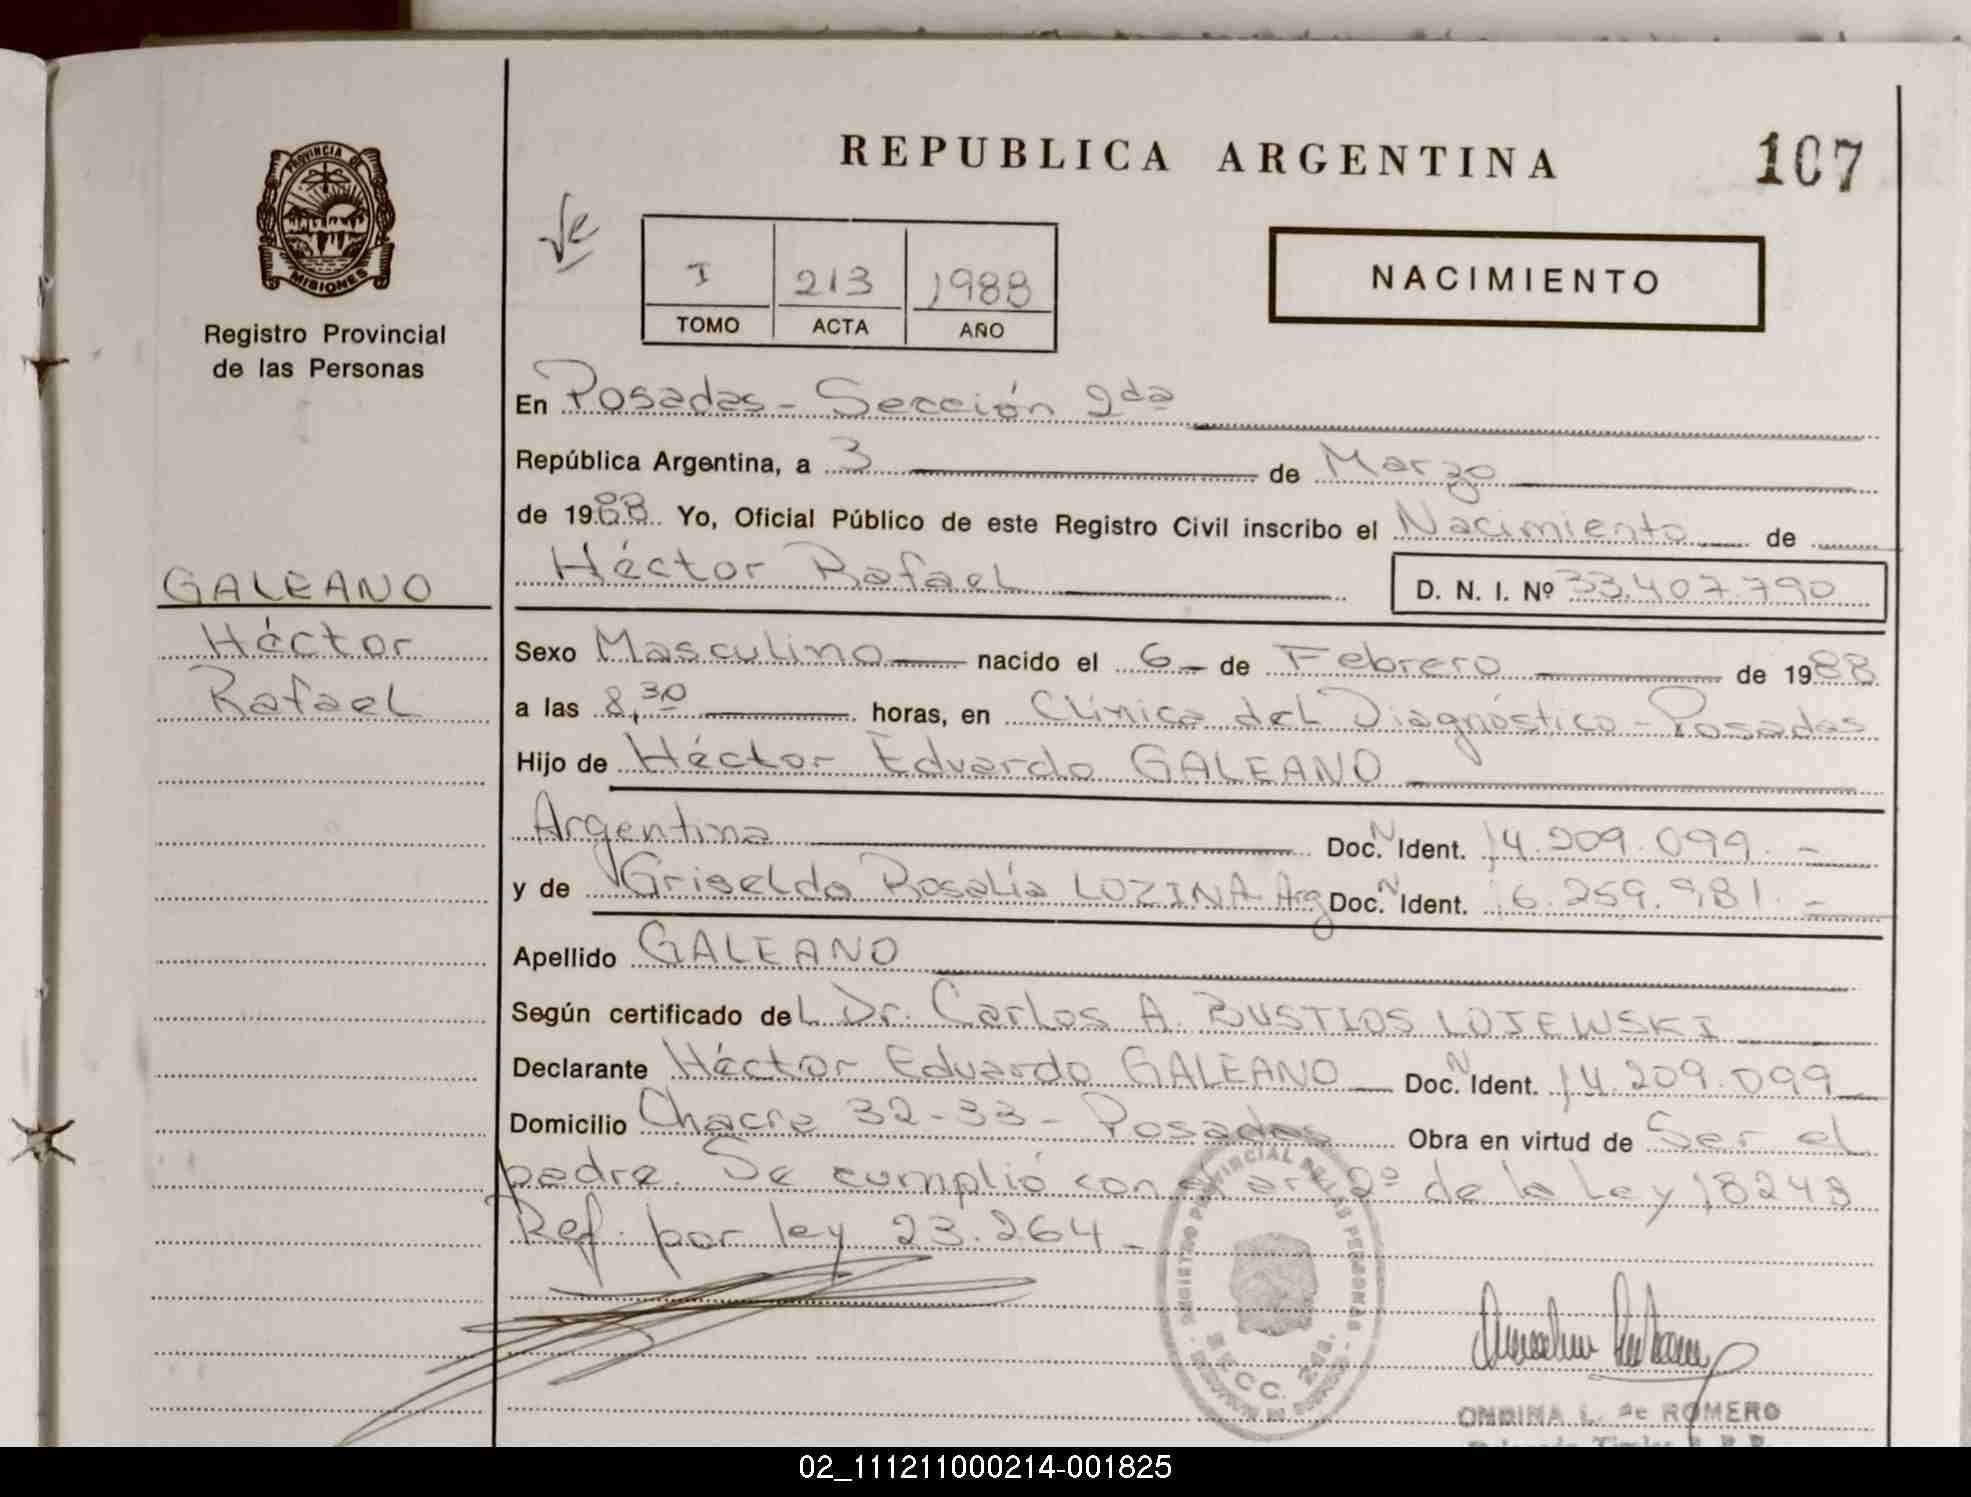 PROVINCIA DE
MISIONES
Registro Provincial
de las Personas
GALEANO
Héctor
Rafael
REPUBLICA ARGENTINA
107
I 213 1988
TOMO ACTA AÑO
NACIMIENTO
En Posadas - Sección 2da
República Argentina, a 3 de Marzo
de 1988. Yo, Oficial Público de este Registro Civil inscribo el Nacimiento de
Héctor Rafael D. N. I. Nº 33.407.790
Sexo Masculino nacido el 6 de Febrero de 1988
a las 8,30 horas, en Clínica del Diagnóstico - Posadas
Hijo de Héctor Eduardo GALEANO
Argentina Doc. N Ident. 14.209.099.-
y de Griselda Rosalía LOZINA Arg Doc. N Ident. 16.259.981.-
Apellido GALEANO
Según certificado del Dr. Carlos A. BUSTIOS LOJEWSKI
Declarante Héctor Eduardo GALEANO Doc. N Ident. 14.209.099
Domicilio Chacra 32-33 - Posadas Obra en virtud de Ser el
padre. Se cumplió con el art 2º de la Ley 18248
Ref. por ley 23.264 -
REGISTRO PROVINCIAL DE LAS PERSONAS
SECC. 2da.
ONDINA L. de ROMERO
02_111211000214-001825